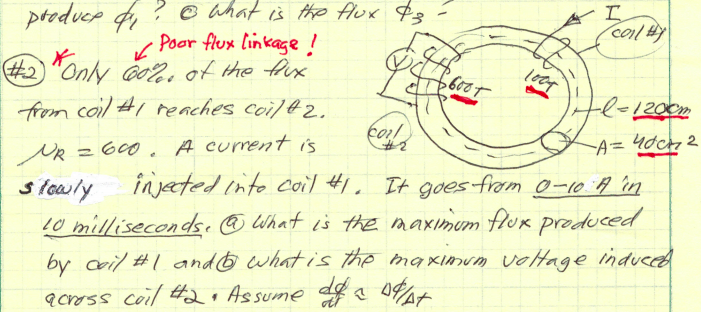 produce ϕ₁? ⓒ What is the flux ϕ₃ -
I
coil #1
* Poor flux linkage!
#2 Only 60% of the flux
V
600T
100T
from coil #1 reaches coil #2.
l = 120cm
coil #2
A = 40cm²
μR = 600. A current is
slowly injected into coil #1. It goes from 0-10 A in
10 milliseconds. ⓐ What is the maximum flux produced
by coil #1 and ⓑ what is the maximum voltage induced
across coil #2. Assume dϕ/dt ≈ Δϕ/Δt